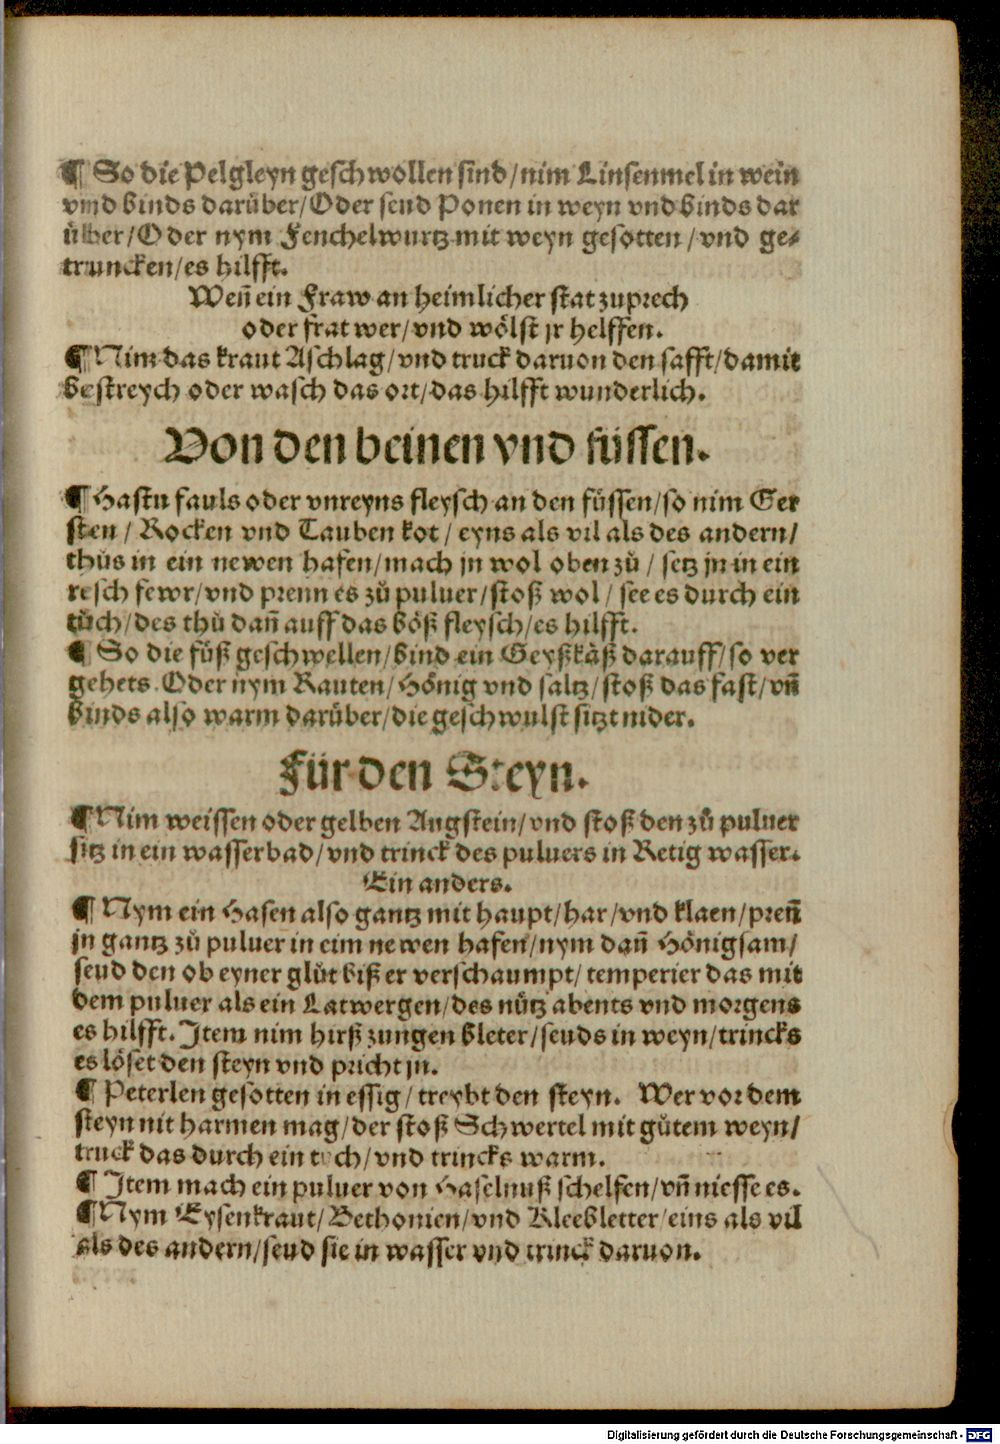 ¶ So die Pelgleyn geschwollen sind/nim Linsenmel in wein
vnd binds darüber/Oder seud Ponen in weyn vnd binds dar
über/Oder nym Fenchelwurtz mit weyn gesotten/vnd ge⸗
truncken/es hilfft.
Weñ ein Fraw an heimlicher stat zuprech
oder frat wer/vnd wölst jr helffen.
¶ Nim das kraut Aschlag/vnd truck daruon den safft/damit
bestreych oder wasch das ort/das hilfft wunderlich.
Von den beinen vnd füssen.
¶ Hastu fauls oder vnreyns fleysch an den füssen/so nim Ger
sten/Rocken vnd Tauben kot/eyns als vil als des andern/
thůs in ein newen hafen/mach jn wol oben zů/setz jn in ein
resch fewr/vnd prenn es zů puluer/stoß wol/see es durch ein
tůch/des thů dañ auff das böß fleysch/es hilfft.
¶ So die füß geschwellen/bind ein Geyßkäß darauff/so ver
gehets. Oder nym Rauten/Hönig vnd saltz/stoß das fast/vñ
binds also warm darüber/die geschwulst sitzt nider.
Für den Steyn.
¶ Nim weissen oder gelben Augstein/vnd stoß den zů puluer
sitz in ein wasserbad/vnd trinck des puluers in Retig wasser.
Ein anders.
¶ Nym ein Hasen also gantz mit haupt/har/vnd klaen/preñ
jn gantz zů puluer in eim newen hafen/nym dañ Hönigsam/
seud den ob eyner glůt biß er verschaumpt/temperier das mit
dem puluer als ein Latwergen/des nütz abents vnd morgens
es hilfft. Item nim hirß zungen bleter/seuds in weyn/trincks
es löset den steyn vnd pricht jn.
¶ Peterlen gesotten in essig/treybt den steyn. Wer vor dem
steyn nit harmen mag/der stoß Schwertel mit gůtem weyn/
truck das durch ein tůch/vnd trincks warm.
¶ Item mach ein puluer von Haselnuß schelfen/vñ niesse es.
¶ Nym Eysenkraut/Bethonien/vnd Kleebletter/eins als vil
als des andern/seud sie in wasser vnd trinck daruon.
Digitalisierung gefördert durch die Deutsche Forschungsgemeinschaft - DFG